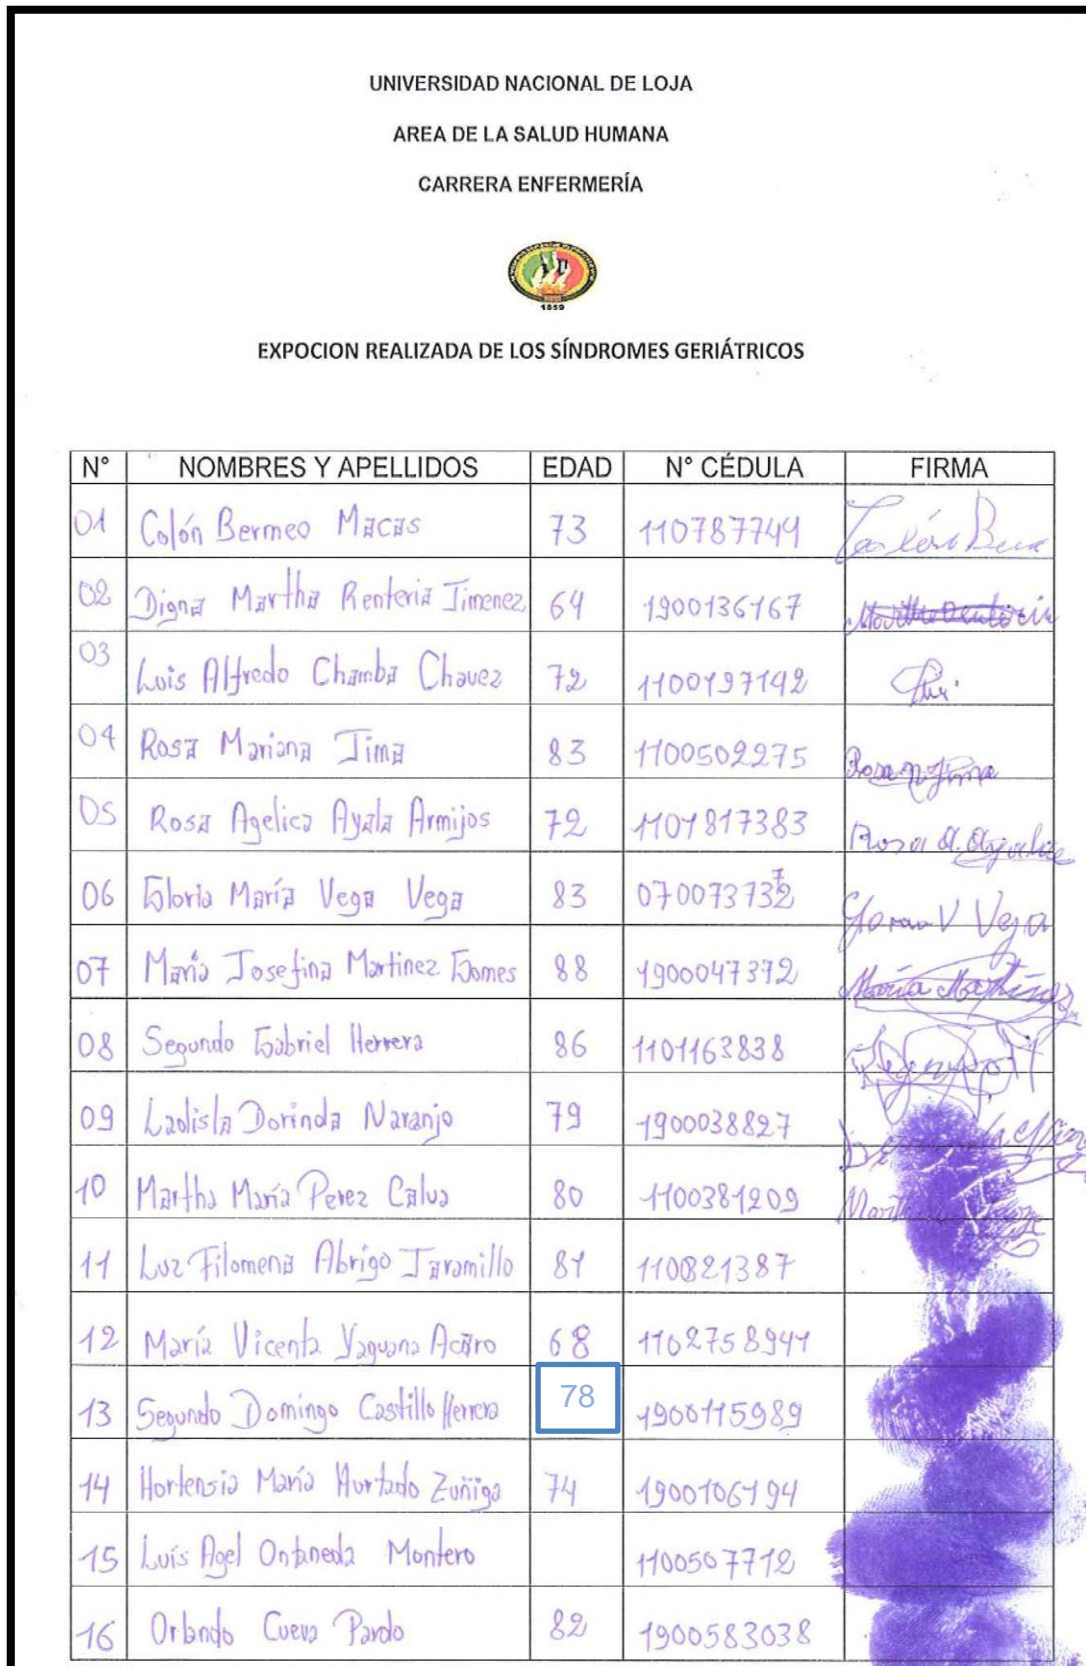 UNIVERSIDAD NACIONAL DE LOJA
AREA DE LA SALUD HUMANA
CARRERA ENFERMERÍA
1859
EXPOCION REALIZADA DE LOS SÍNDROMES GERIÁTRICOS
N° NOMBRES Y APELLIDOS EDAD N° CÉDULA FIRMA
01 Colón Bermeo Macas 73 110787749
02 Digna Martha Renteria Jimenez 64 1900136167
03 Luis Alfredo Chamba Chavez 72 1100197142
04 Rosa Mariana Jima 83 1100502275 Rosa M Jima
05 Rosa Agelica Ayala Armijos 72 1101817383 Rosa A. Ayala
06 Gloria María Vega Vega 83 070073732 V Vega
07 María Josefina Martinez Gomes 88 1900047372 María Martínez
08 Segundo Gabriel Herrera 86 1101163838
09 Ladisla Dorinda Naranjo 79 1900038827
10 Martha María Perez Calva 80 1100381209
11 Luz Filomena Abrigo Jaramillo 81 110821387
12 María Vicenta Yaguana Acaro 68 1102758941
13 Segundo Domingo Castillo Herrera 78 1900115989
14 Hortensia María Hurtado Zuñiga 74 1900106194
15 Luís Agel Ontaneda Montero 1100507712
16 Orlando Cueva Pardo 82 1900583038